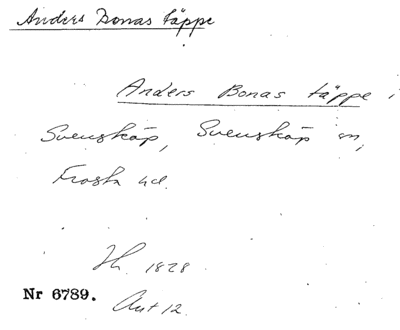 Anders Bonas täppe
Anders Bonas täppe i
Svensköp, Svensköp sn,
Frosta hd.
1828
Nr 6789. Akt 12